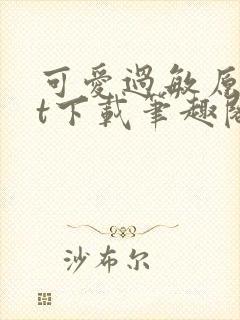 可愛過敏原
t下載筆趣閣
沙布尔